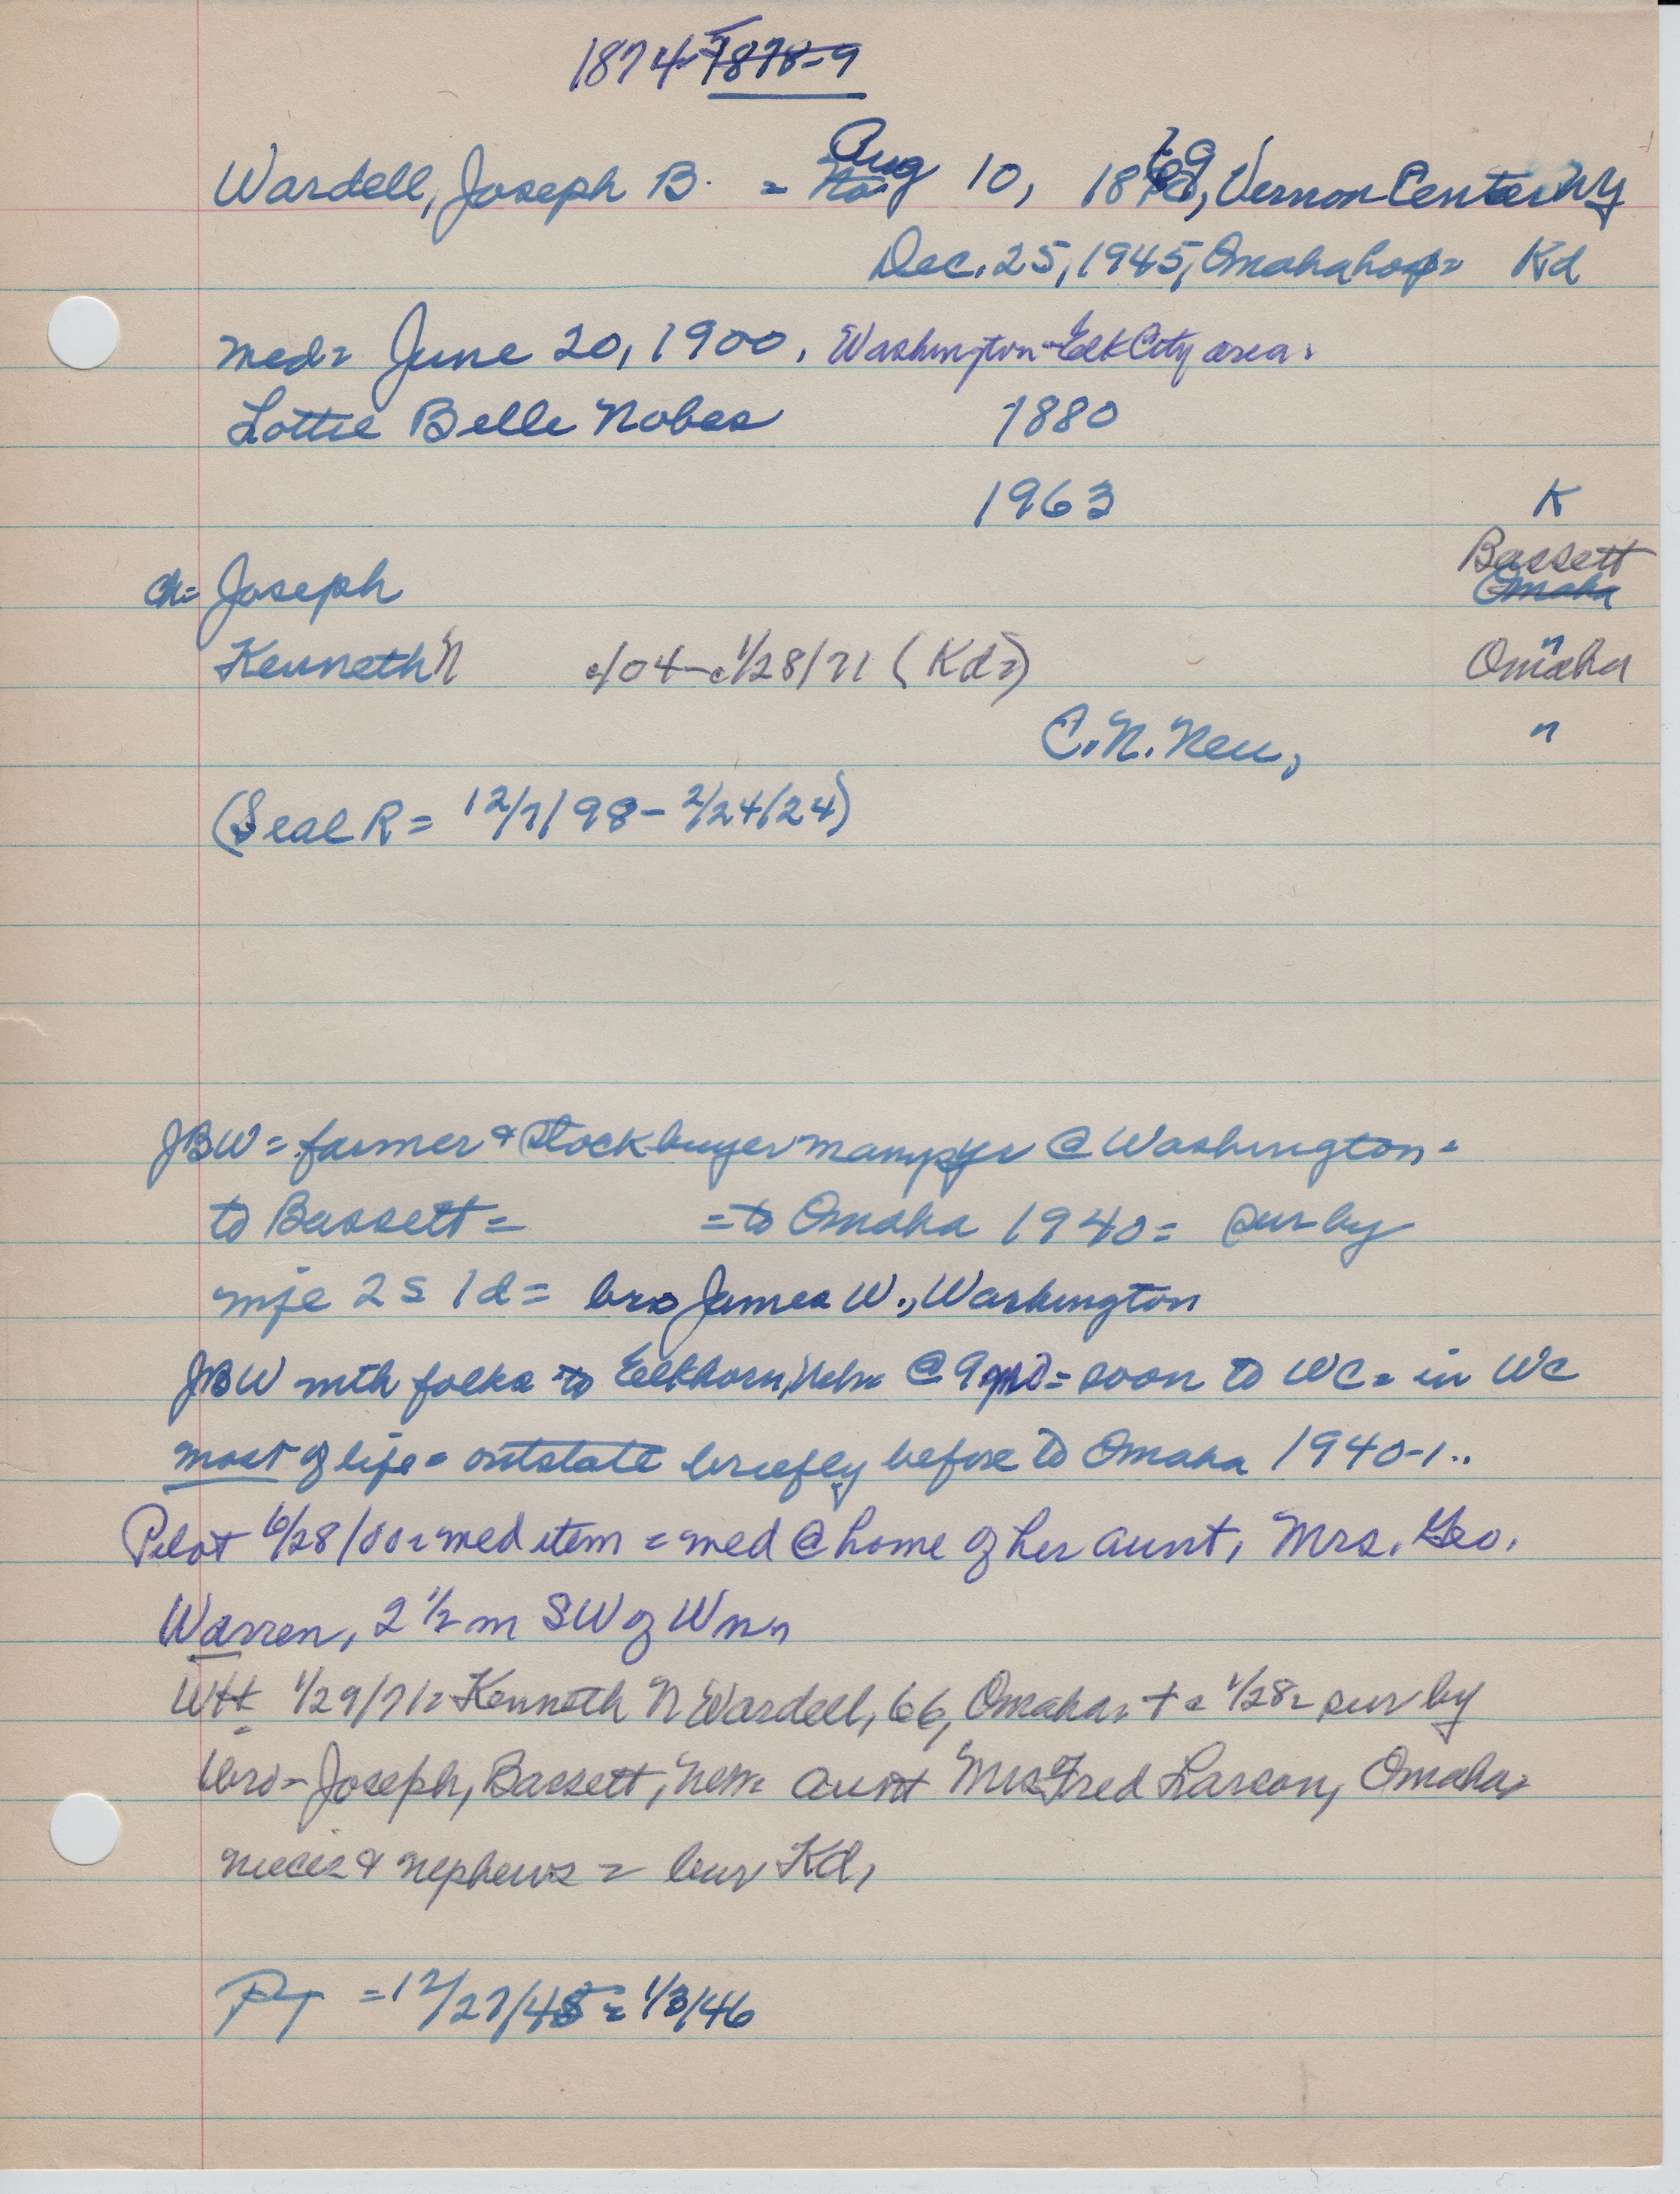 1874-5 1878-9
Wardell, Joseph B. = Aug 10, 1879, Vernon Center NY
Dec. 25, 1945, Omaha hosp = Kd
med = June 20, 1900, Washington-Elk City area.
Lottie Belle Nobes 1880
1963 K
Bassett
ch = Joseph Omaha
Kenneth N c/04-c1/28/71 (Kd=) Omaha
C. N. Neu, "
(Seal R = 12/7/98 - 2/24/24)
JBW = farmer & stockbuyer many yr @ Washington =
to Bassett = = to Omaha 1940 = sur by
wife 2s 1d = bro James W., Washington
JBW with folks to Elkhorn, Neb = @ 9 = soon to WC = in WC
most of life = outstate briefly before to Omaha 1940-1..
Pilot 6/28/00 = med item = med @ home of her aunt, Mrs. Geo.
Warren, 2 1/2 m SW of Wn,
WH 1/29/71 = Kenneth N Wardell, 66, Omaha = + c 1/28 = sur by
bro - Joseph, Bassett, Neb = aunt Mrs Fred Larson, Omaha =
nieces & nephews = bur Kd,
= 12/27/45 = 1/3/46